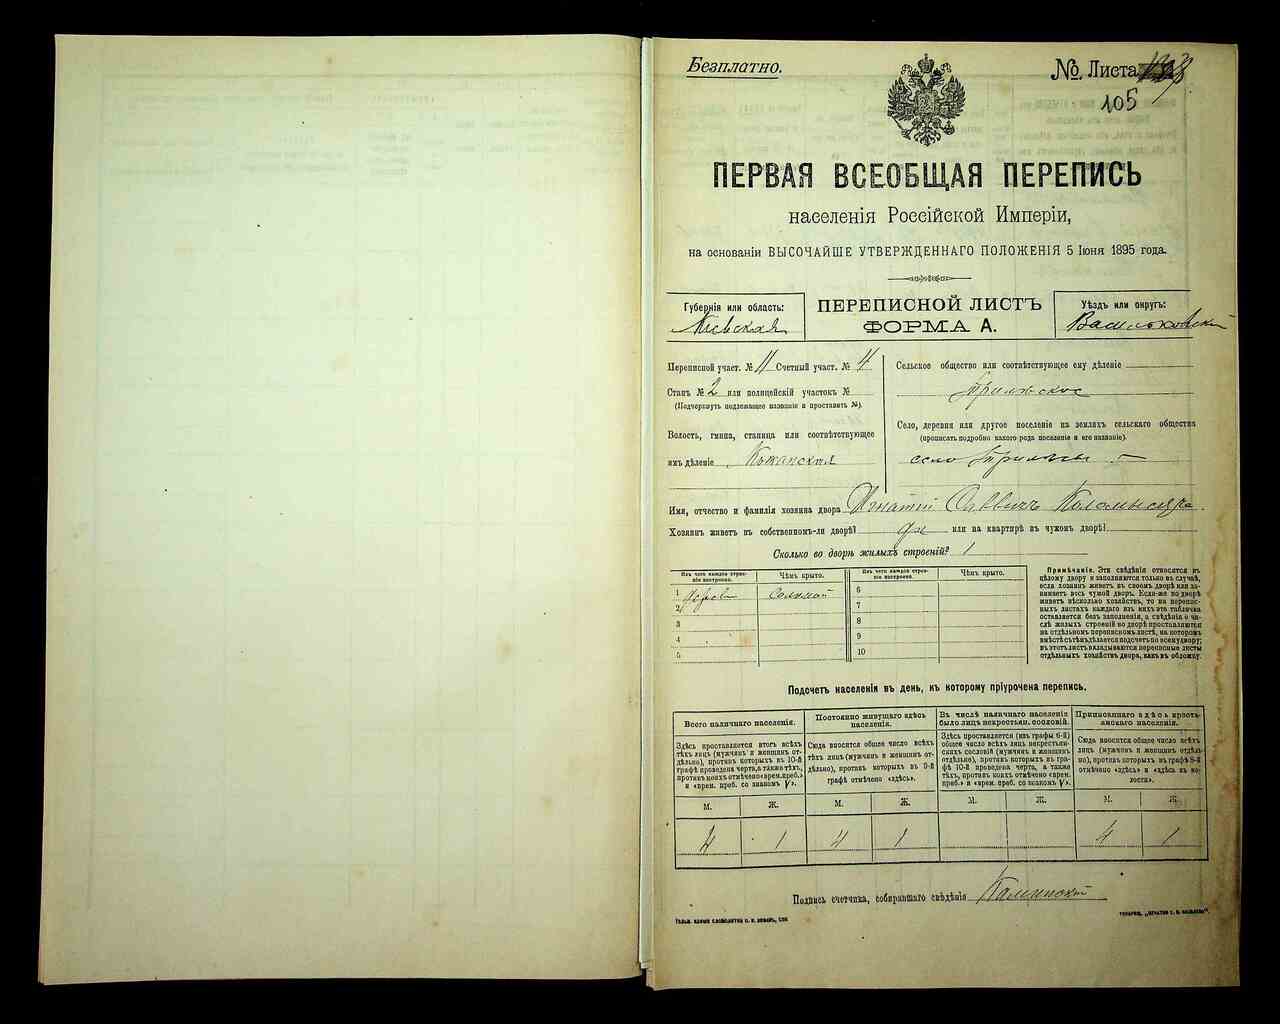 Безплатно.
№ Листа
105
ПЕРВАЯ ВСЕОБЩАЯ ПЕРЕПИСЬ
населенія Россійской Имперіи,
на основаніи ВЫСОЧАЙШЕ УТВЕРЖДЕННАГО ПОЛОЖЕНІЯ 5 Іюня 1895 года.
Губернія или область:
Кіевская
ПЕРЕПИСНОЙ ЛИСТЪ
ФОРМА А.
Уѣздъ или округъ:
Васильковскій
Переписной участ. № 11 Счетный участ. № 4
Станъ № 2 или полицейскій участокъ №
(Подчеркнуть подлежащее названіе и проставить №).
Волость, гмина, станица или соотвѣтствующее
имъ дѣленіе Кожанская
Сельское общество или соотвѣтствующее ему дѣленіе
Трилѣсское
Село, деревня или другое поселеніе на земляхъ сельскаго общества
(прописать подробно какого рода поселеніе и его названіе).
село Трилѣсы
Имя, отчество и фамилія хозяина двора Игнатій Саввичъ
Хозяинъ живетъ въ собственномъ-ли дворѣ? да или на квартирѣ въ чужомъ дворѣ?
Сколько во дворѣ жилыхъ строеній? 1
Изъ чего каждое строеніе построено.
Чѣмъ крыто.
Изъ чего каждое строеніе построено.
Чѣмъ крыто.
1 Дерева Соломой 6
2 7
3 8
4 9
5 10
Примѣчаніе. Эти свѣдѣнія относятся къ
цѣлому двору и заполняются только въ случаѣ,
если хозяинъ живетъ въ своемъ дворѣ или занимаетъ
весь чужой дворъ. Если-же во дворѣ
живетъ нѣсколько хозяйствъ, то на переписныхъ
листахъ каждаго изъ нихъ эта табличка
оставляется безъ заполненія, а свѣдѣнія о числѣ
жилыхъ строеній во дворѣ проставляются
на отдѣльномъ переписномъ листѣ, на которомъ
вмѣстѣ съ тѣмъ дѣлается подсчетъ по всему двору;
въ этотъ листъ вкладываются переписные листы
отдѣльныхъ хозяйствъ двора, какъ въ обложку.
Подсчетъ населенія въ день, къ которому пріурочена перепись.
Всего наличнаго населенія.
Здѣсь проставляется итогъ всѣхъ
тѣхъ лицъ (мужчинъ и женщинъ отдѣльно),
противъ которыхъ въ 10-й
графѣ проведена черта, а также тѣхъ,
противъ коихъ отмѣчено «врем. преб.»
и «врем. преб. со знакомъ V».
Постоянно живущаго здѣсь
населенія.
Сюда вносится общее число всѣхъ
тѣхъ лицъ (мужчинъ и женщинъ отдѣльно),
противъ которыхъ въ 9-й
графѣ отмѣчено «здѣсь».
Въ числѣ наличнаго населенія
было лицъ некрестьян. сословій.
Здѣсь проставляется (изъ графы 6-й)
общее число всѣхъ лицъ некрестьянскихъ
сословій (мужчинъ и женщинъ
отдѣльно), противъ которыхъ въ графѣ
10-й проведена черта, а также
тѣхъ, противъ коихъ отмѣчено «врем.
преб.» и «врем. преб. со знакомъ V».
Приписаннаго здѣсь крестьянскаго
населенія.
Сюда вносится общее число всѣхъ
лицъ (мужчинъ и женщинъ отдѣльно),
противъ которыхъ въ графѣ 8-й
отмѣчено «здѣсь» и «здѣсь въ волости».
М. Ж. М. Ж. М. Ж. М. Ж.
4 1 4 1 4 1
Подпись счетчика, собиравшаго свѣдѣнія Каминскій